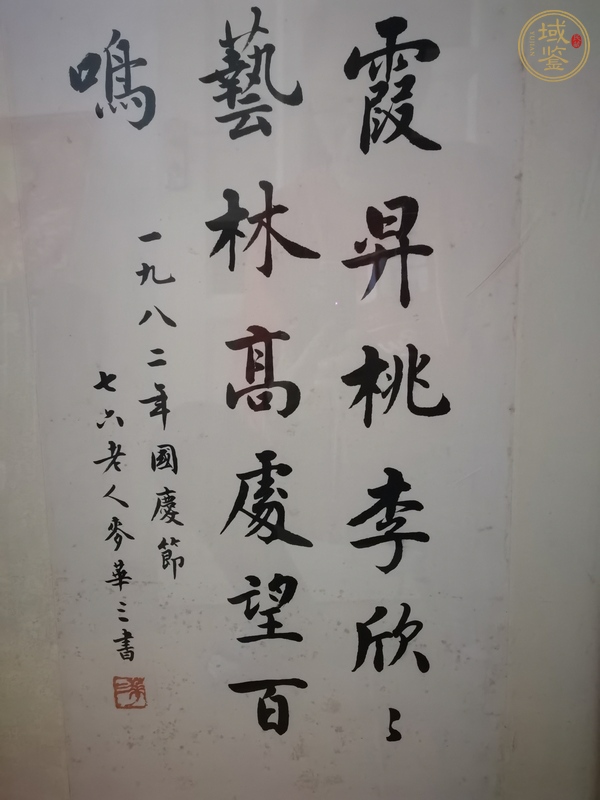 霞昇桃李欣〻
藝林高處望百
鳴
一九八二年國慶節
七六老人麥華三書
域鉴